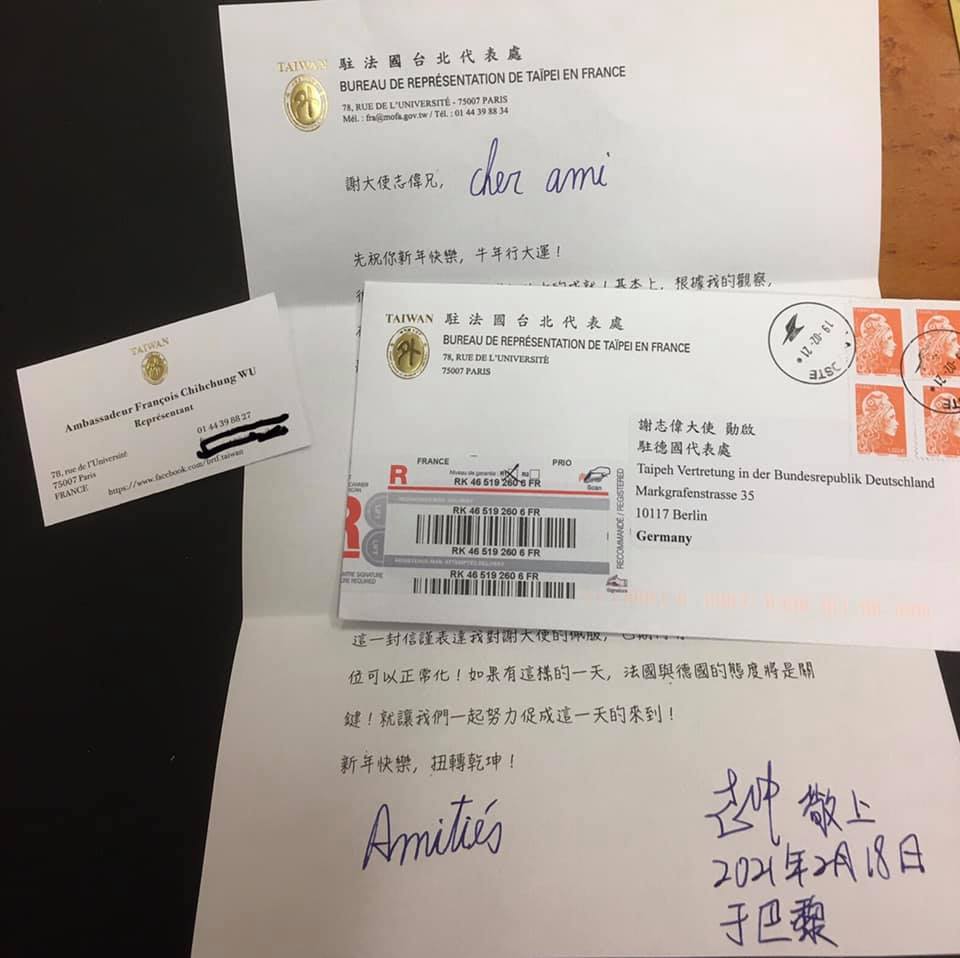 TAIWAN
駐法國台北代表處
BUREAU DE REPRÉSENTATION DE TAÏPEI EN FRANCE
78, RUE DE L'UNIVERSITÉ - 75007 PARIS
Mél. : fra@mofa.gov.tw / Tél. : 01 44 39 88 34
謝大使志偉兄, cher ami
先祝你新年快樂, 牛年行大運!
的成就!基本上, 根據我的觀察,
這一封信謹表達我對謝大使的佩服,
位可以正常化!如果有這樣的一天, 法國與德國的態度將是關
鍵!就讓我們一起努力促成這一天的來到!
新年快樂, 扭轉乾坤!
Amitiés
志中 敬上
2021年2月18日
于巴黎
TAIWAN
Ambassadeur François Chihchung WU
Représentant
01 44 39 88 27
78, rue de l'Université
75007 Paris
FRANCE
https://www.facebook.com/brtf.taiwan
TAIWAN
駐法國台北代表處
BUREAU DE REPRÉSENTATION DE TAÏPEI EN FRANCE
78, RUE DE L'UNIVERSITÉ
75007 PARIS
19-02-21
謝志偉大使 勛啟
駐德國代表處
Taipeh Vertretung in der Bundesrepublik Deutschland
Markgrafenstrasse 35
10117 Berlin
Germany
R
FRANCE
PRIO
Niveau de garantie : R1 R2
RK 46 519 260 6 FR
Scan
RK 46 519 260 6 FR
RK 46 519 260 6 FR
RECOMMANDÉ / REGISTERED
Signature